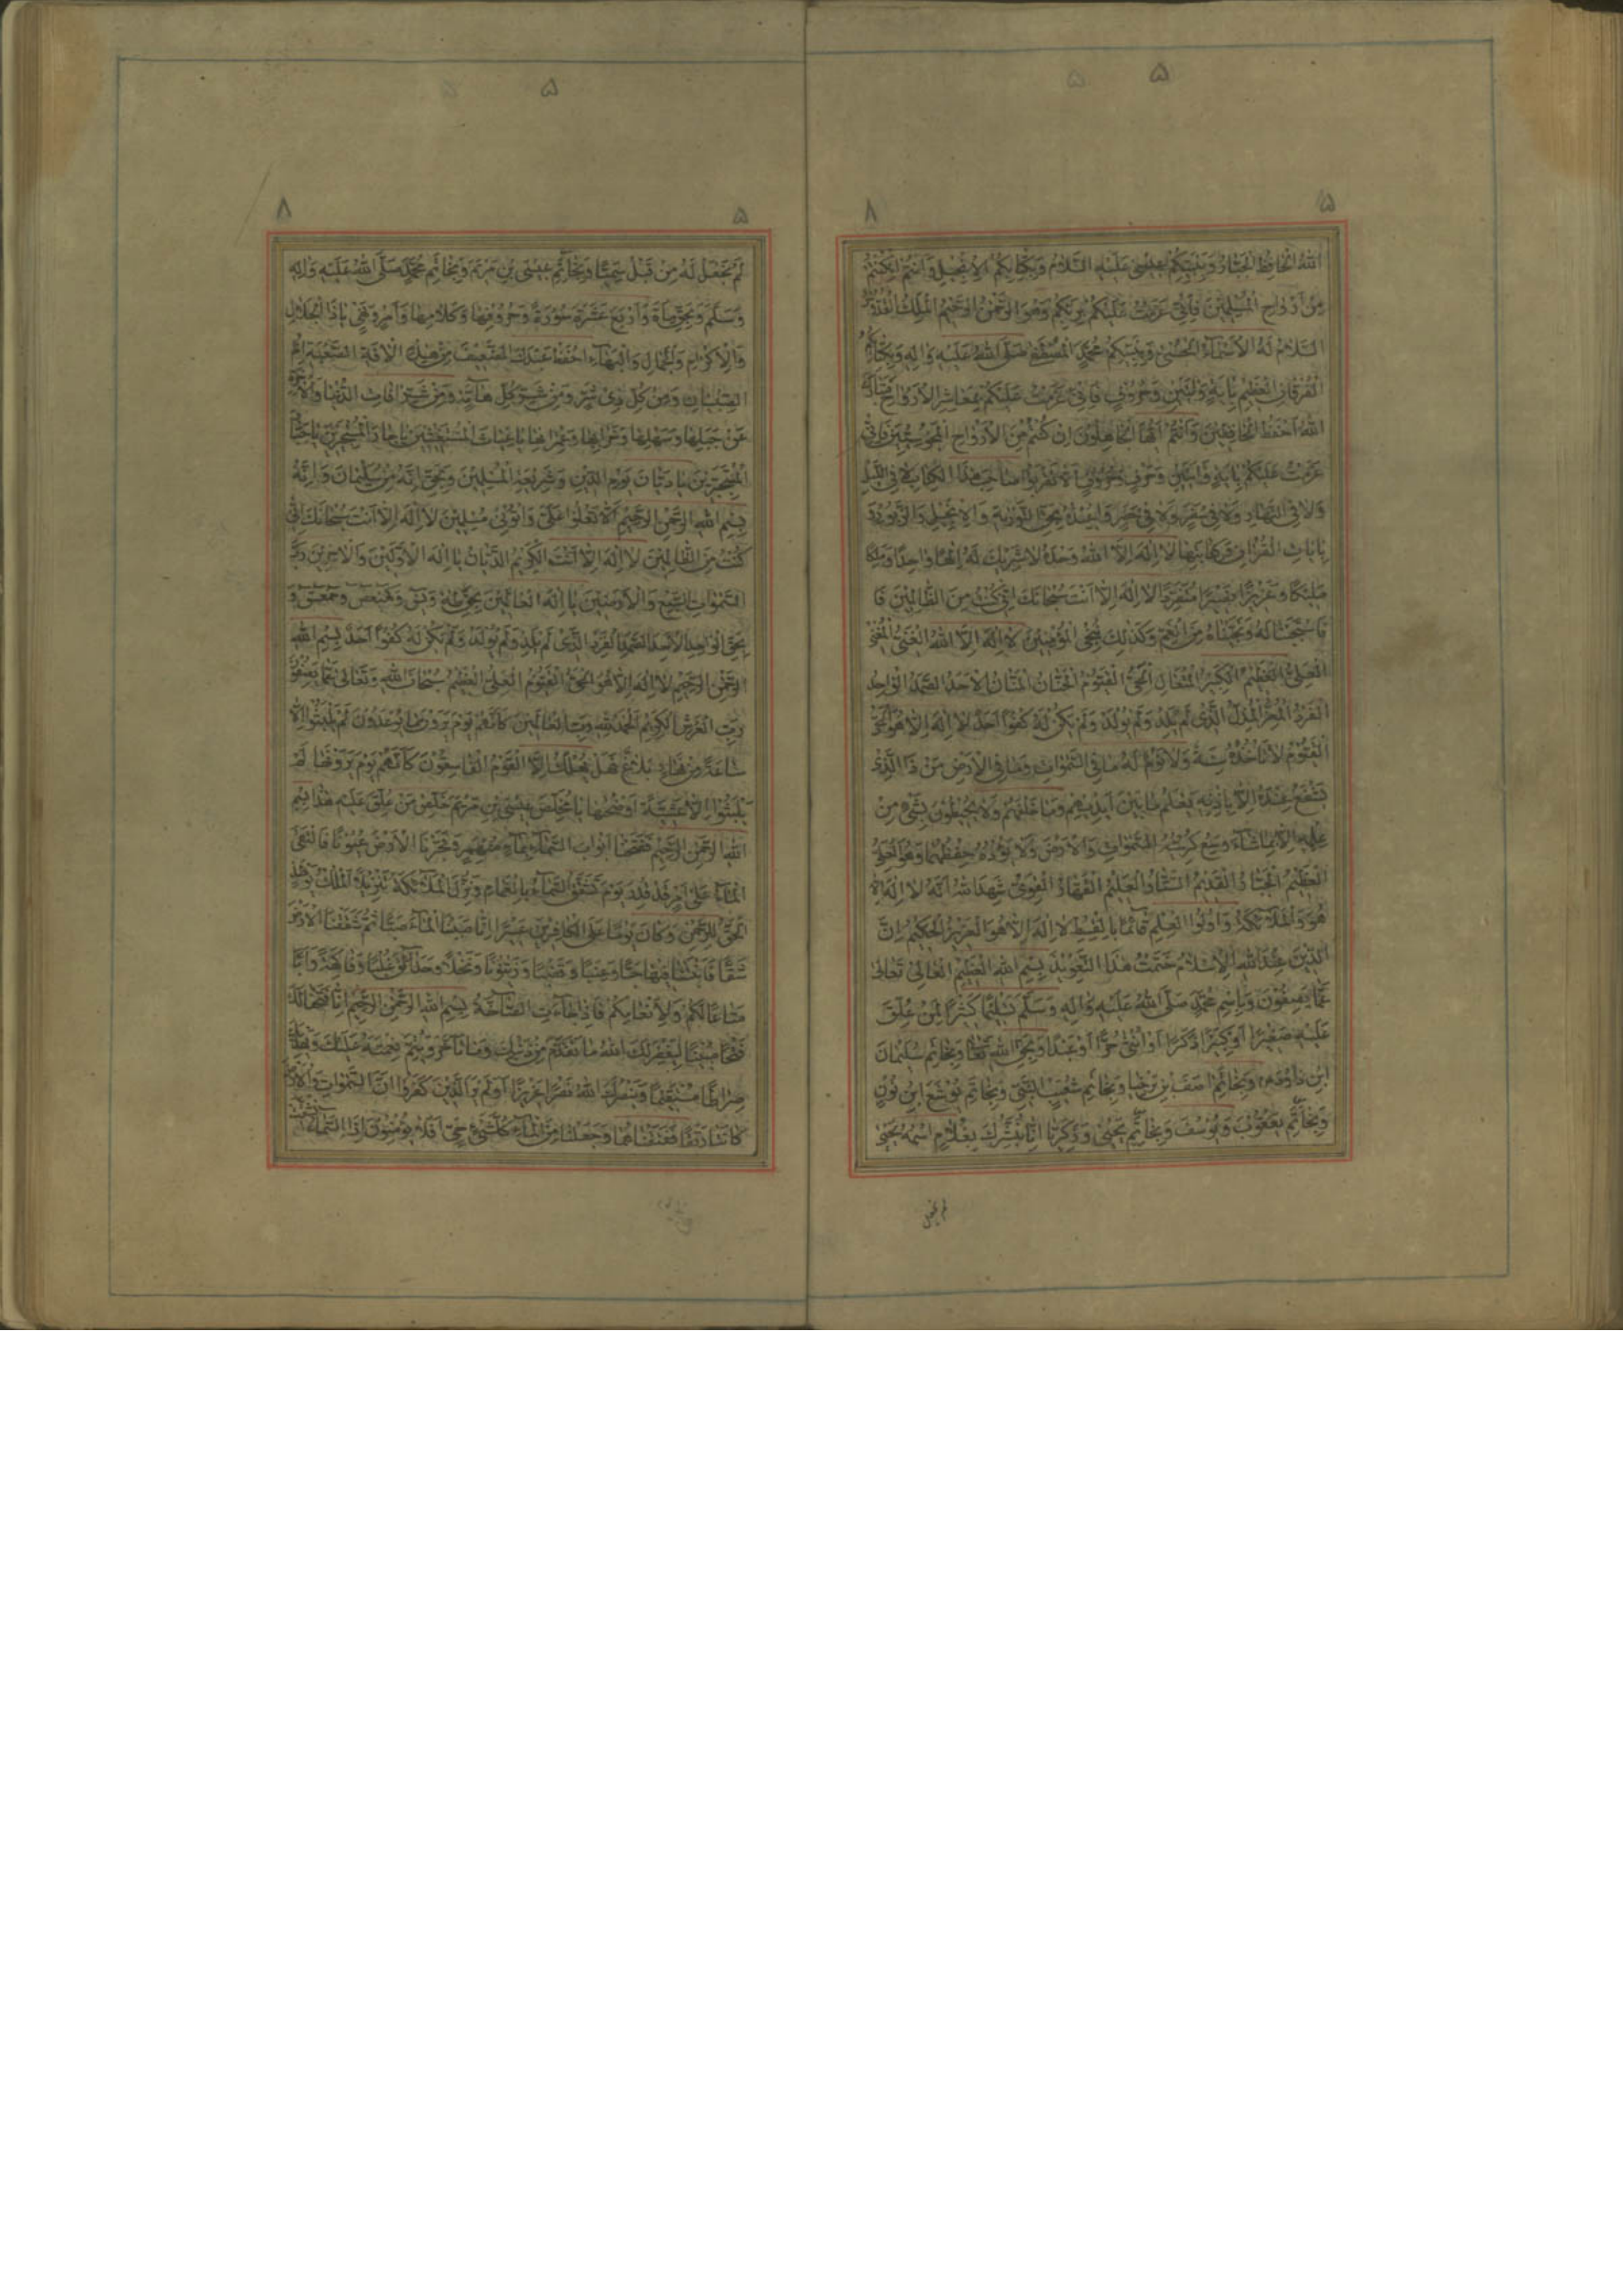 ۵
۵
۸
الله الحافظ الجبار وبنبيكم عيسى عليه السلام وبكتابكم الانجيل وان انتم لكنتم
من ارواح المسلمين فانى عزمت عليكم بربكم وهو الرحمن الرحيم الملك القدوس
السلام له الاسماء الحسنى وبنبيكم محمد المصطفى صلى الله عليه واله وبكتابكم
الفرقان العظيم باية وايتين وحروف فانى عزمت عليكم بمعاشر الارواح
الله احفظ الحافظين وانتم ايها الجاهلون ان كنتم من الارواح المجوسيين فانى
عزمت عليكم باية وايتين وحرف وحروف ان لا تقربوا صاحب هذا الكتاب لا فى الليل
ولا فى النهار ولا فى سفر ولا فى حضر وابعده بحق التورية والانجيل والزبور وعوذ
بايات القران فى كتابتها لا اله الا الله وحده لا شريك له الها واحدا وملكا
مليكا وعزيزا مقتدرا متفردا لا اله الا انت سبحانك انى كنت من الظالمين فا
فاستجبنا له ونجيناه من الغم وكذلك ننجى المؤمنين لا اله الا الله الغنى المغنى
العلى العظيم الكبير المتعال الحى القيوم الحنان المنان الاحد الصمد الواحد
الفرد المعز المذل الذى لم يلد ولم يولد ولم يكن له كفوا احد لا اله الا هو الحى
القيوم لا تاخذه سنة ولا نوم له ما فى السموات وما فى الارض من ذا الذى
يشفع عنده الا باذنه يعلم ما بين ايديهم وما خلفهم ولا يحيطون بشئ من
علمه الا بما شاء وسع كرسيه السموات والارض ولا يؤده حفظهما وهو العلى
العظيم الجبار القديم الستار العليم القهار القوى شهد الله انه لا اله الا
هو والملائكة واولوا العلم قائما بالقسط لا اله الا هو العزيز الحكيم ان
الدين عند الله الاسلام ختمت هذا التعويذ بسم الله العظيم العالى تعالى
عما يصفون وباسم محمد صلى الله عليه واله وسلم تسليما كثيرا لمن علق
عليه صغيرا او كبيرا ذكرا او انثى حرا او عبدا وبحق الله تعالى وبخاتم سليمان
ابن داود وبخاتم اصف بن برخيا وبخاتم شعيب النبى وبخاتم يوشع ابن نون
وبخاتم يعقوب ويوسف وبخاتم يحيى وزكريا انا نبشرك بغلام اسمه يحيى
لم نجعل
۵
۵
۸
لم نجعل له من قبل سميا وبخاتم عيسى بن مريم وبخاتم محمد صلى الله عليه واله
وسلم وبحق ماة واربع عشرة سورة وحروفها وكلامها وامر ونهى ياذا الجلال
والاكرام والجمال والبهاء احفظ عبدك الضعيف من هذه الافة الصعبة ام
الصبيان ومن كل ذى شر ومن شر كل هامة ومن شر افات الدنيا والاخرة
عن جبلها وسهلها وبرها وبحرها يا غياث المستغيثين
يا ديان يوم الدين وشريعة المسلمين وبحق انه من سليمان وانه
بسم الله الرحمن الرحيم الا تعلوا على واتونى مسلمين لا اله الا انت سبحانك انى
كنت من الظالمين لا اله الا انت الكريم الديان يا اله الاولين والاخرين رب
السموات السبع والارضين يا اله العالمين بحق طه ويس وكهيعص وحمعسق و
بحق الواحد الاحد الصمد الفرد الذى لم يلد ولم يولد ولم يكن له كفوا احد بسم الله
الرحمن الرحيم لا اله الا هو الحى القيوم العلى العظيم سبحان الله وتعالى عما يصفون
رب العرش الكريم الحمد لله رب العالمين كانهم يوم يرون ما يوعدون لم يلبثوا الا
ساعة من نهار بلاغ فهل يهلك الا القوم الفاسقون كانهم يوم يرونها لم
يلبثوا الا عشية او ضحها يا مخلص عيسى بن مريم خلص من علق عليه هذا بسم
الله الرحمن الرحيم ففتحنا ابواب السماء بماء منهمر وفجرنا الارض عيونا فالتقى
الماء على امر قد قدر يوم تشقق السماء بالغمام ونزل الملائكة تنزيلا الملك يومئذ
الحق للرحمن وكان يوما على الكافرين عسيرا انا صببنا الماء صبا ثم شققنا الارض
شقا فانبتنا فيها حبا وعنبا وقضبا وزيتونا ونخلا وحدائق غلبا وفاكهة وابا
متاعا لكم ولانعامكم فاذا جاءت الصاخة بسم الله الرحمن الرحيم انا فتحنا لك
فتحا مبينا ليغفر لك الله ما تقدم من ذنبك وما تاخر ويتم نعمته عليك ويهديك
صراطا مستقيما وينصرك الله نصرا عزيزا اولم ير الذين كفروا ان السموات والارض
كانتا رتقا ففتقناهما وجعلنا من الماء كل شئ حى افلا يؤمنون اذا السماء انشقت